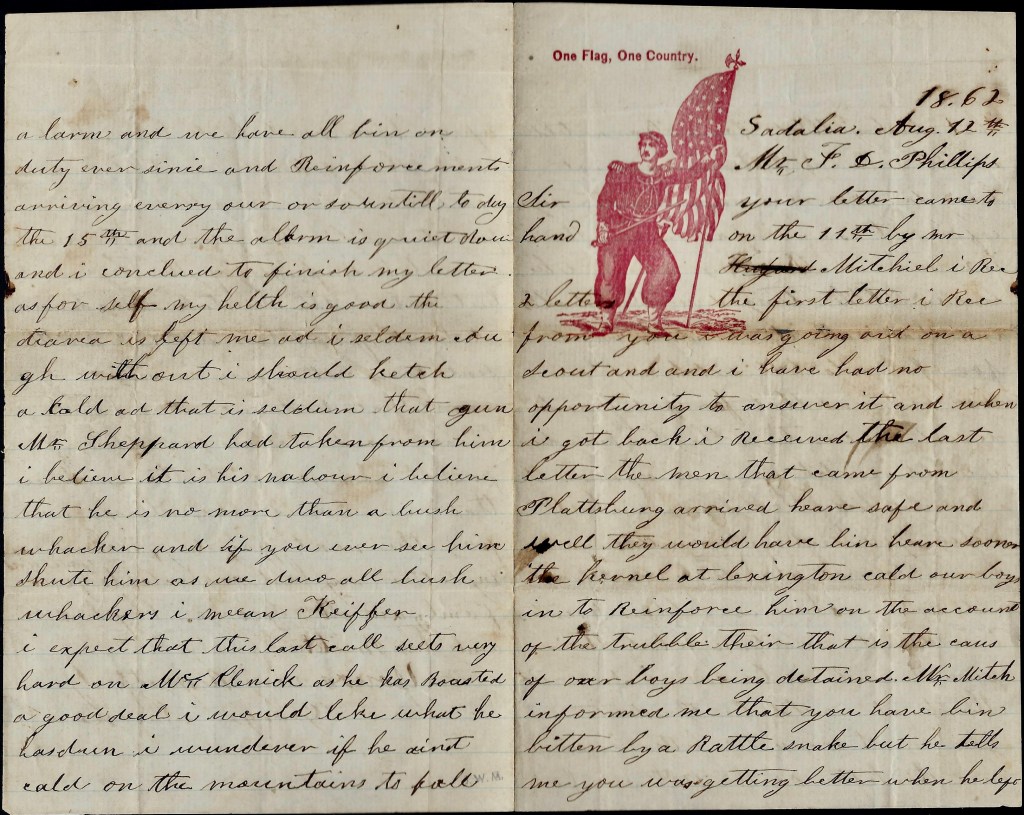 One Flag, One Country.
18.62
Sadalia. Aug. 12th
Mr. F. D. Phillips
Sir your letter came to
hand on the 11th by mr
Mitchiel i Rec
2 letters the first letter i Rec
from you i was going out on a
scout and and i have had no
opportunity to answer it and when
i got back i Received the last
letter the men that came from
Plattsburg arrived heare safe and
well they would have bin heare sooner
the Kernel at lexington cald our boys
in to Reinforce him on the account
of the trubble their that is the caus
of our boys being detained. Mr. Mitch
informed me that you have bin
bitten by a Rattle snake but he tells
me you was getting better when he left
a larm and we have all bin on
duty ever sinie and Reinforcements
arriving eversy our or so untill to day
the 15th and the alarm is quiet down
and i conclued to finish my letter.
as for self my helth is good the
diarea is left me ad i seldum cou
gh with out i should ketch
a cold ad that is seldum that gun
Mr. Sheppard had taken from him
i believe it is his nabour i believe
that he is no more than a bush
whacker and if you ever see him
shute him as we duo all bush
whackers i meean Keiffer
i expect that this last call sets very
hard on Mr Clenick as he has Boasted
a good deal i would like what he
has dun i wundever if he aint
cald on the mountains to fall
W.M.